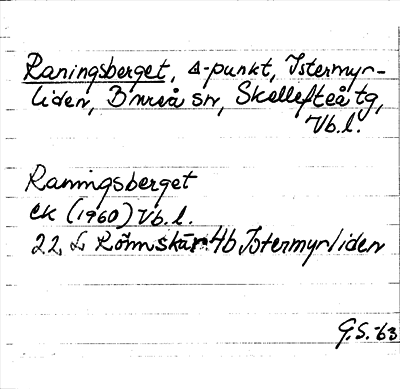 Raningsberget, △-punkt, Istermyr-
liden, Bureå sn, Skellefteå tg,
Vb.l.
Raningsberget
ek (1960) Vb.l.
22 L Rönnskär 4b Istermyrliden
G.S. -63